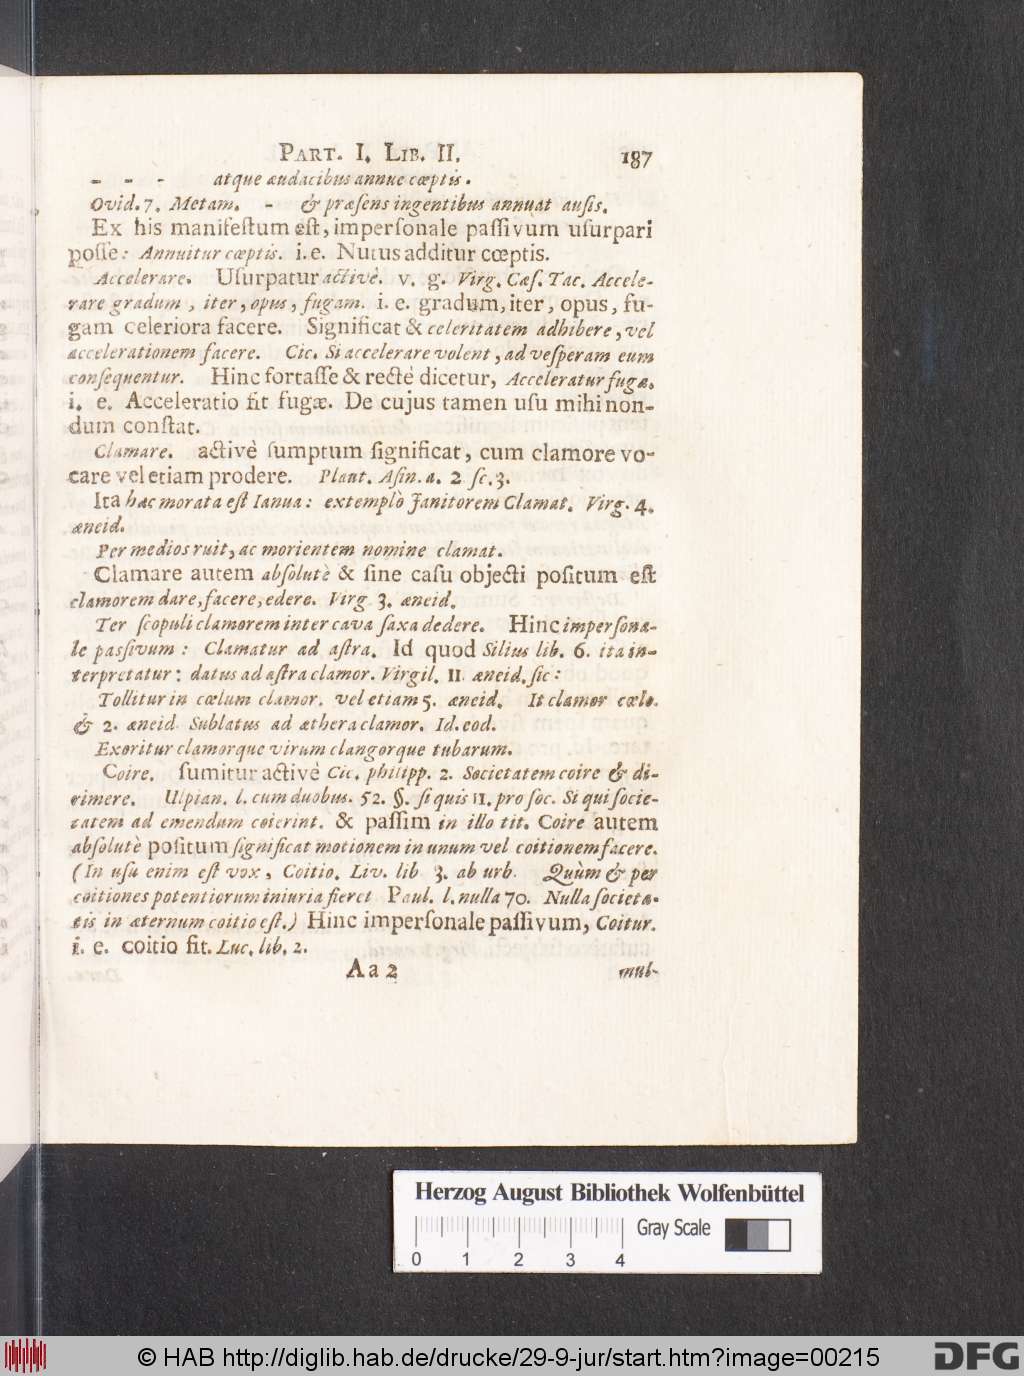 PART. I. LIB. II. 187
- - - atque audacibus annue cœptis.
Ovid. 7. Metam. - & præsens ingentibus annuat ausis.
Ex his manifestum est, impersonale passivum usurpari
posse: Annuitur cœptis. i. e. Nutus additur cœptis.
Accelerare. Usurpatur activè. v. g. Virg. Cæs. Tac. Accele-
rare gradum, iter, opus, fugam. i. e. gradum, iter, opus, fu-
gam celeriora facere. Significat & celeritatem adhibere, vel
accelerationem facere. Cic. Si accelerare volent, ad vesperam eum
consequentur. Hinc fortasse & rectè dicetur, Acceleratur fugæ.
i. e. Acceleratio fit fugæ. De cujus tamen usu mihi non-
dum constat.
Clamare. activè sumptum significat, cum clamore vo-
care vel etiam prodere. Plaut. Asin. a. 2 sc. 3.
Ita hæc morata est Ianua: extemplò Janitorem Clamat. Virg. 4.
æneid.
Per medios ruit, ac morientem nomine clamat.
Clamare autem absolutè & sine casu objecti positum est
clamorem dare, facere, edere. Virg 3. æneid.
Ter scopuli clamorem inter cava saxa dedere. Hinc impersona-
le passivum: Clamatur ad astra. Id quod Silius lib. 6. ita in-
terpretatur: datus ad astra clamor. Virgil. 11. æneid. sic:
Tollitur in cœlum clamor. vel etiam 5. æneid. It clamor cœlo.
& 2. æneid. Sublatus ad æthera clamor. Id. eod.
Exoritur clamorque virum clangorque tubarum.
Coire. sumitur activè Cic. philipp. 2. Societatem coire & di-
rimere. Ulpian. l. cum duobus. 52. §. si quis 11. pro soc. Si qui socie-
tatem ad emendum coierint. & passim in illo tit. Coire autem
absolutè positum significat motionem in unum vel coitionem facere.
(In usu enim est vox, Coitio. Liv. lib 3. ab urb. Quùm & per
coitiones potentiorum iniuria fieret Paul. l. nulla 70. Nulla societa-
tis in æternum coitio est.) Hinc impersonale passivum, Coitur.
i. e. coitio fit. Luc. lib. 2.
Aa 2 mul-
Herzog August Bibliothek Wolfenbüttel
Gray Scale
0 1 2 3 4
© HAB http://diglib.hab.de/drucke/29-9-jur/start.htm?image=00215
DFG